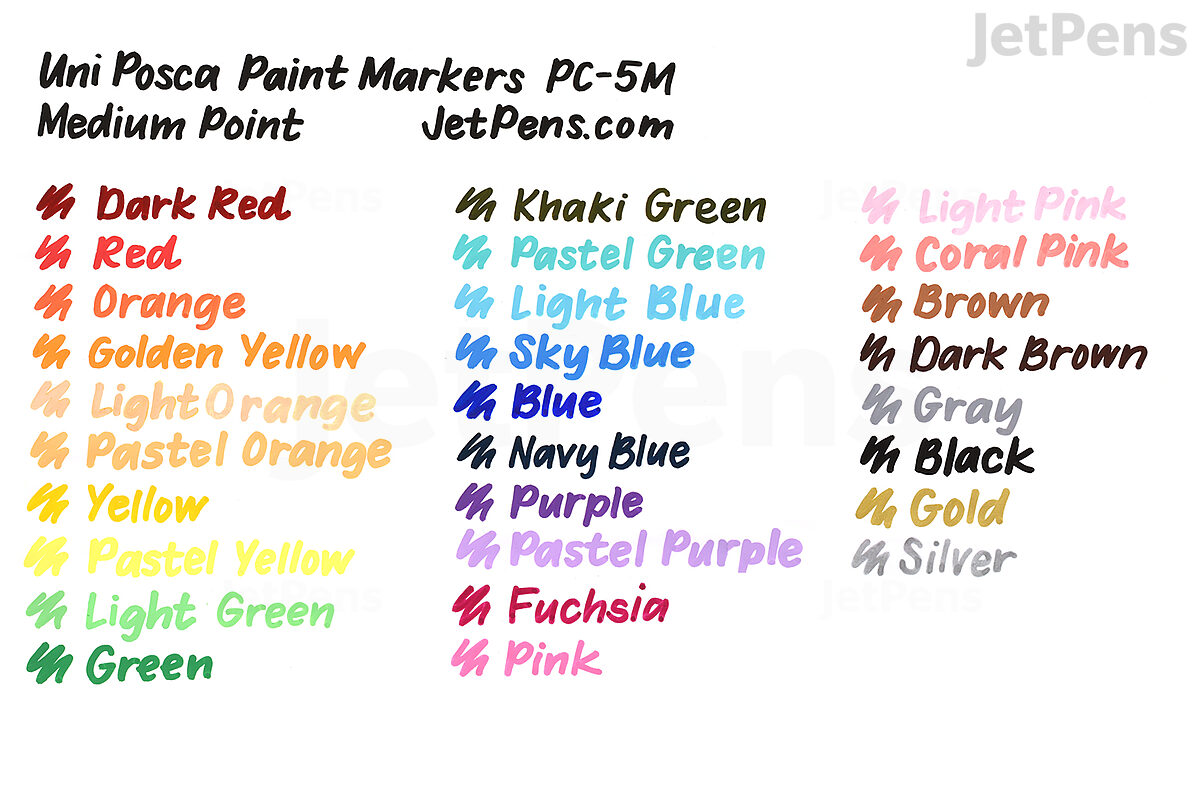 JetPens
Uni Posca Paint Markers PC-5M
Medium Point JetPens.com
Dark Red
Red
Orange
Golden Yellow
Light Orange
Pastel Orange
Yellow
Pastel Yellow
Light Green
Green
Khaki Green
Pastel Green
Light Blue
Sky Blue
Blue
Navy Blue
Purple
Pastel Purple
Fuchsia
Pink
Light Pink
Coral Pink
Brown
Dark Brown
Gray
Black
Gold
Silver
JetPens
JetPens
JetPens
JetPens
JetPens